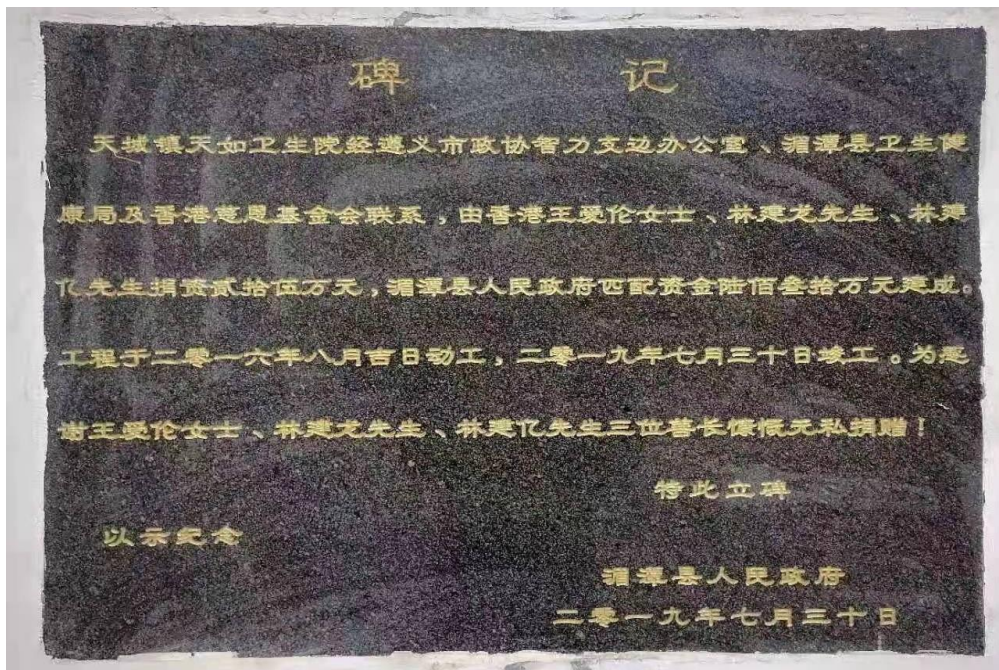 碑 记
天城镇天如卫生院经遵义市政协智力支边办公室、湄潭县卫生健
康局及香港慈恩基金会联系，由香港王爱伦女士、林建龙先生、林建
亿先生捐资贰拾伍万元，湄潭县人民政府匹配资金陆佰叁拾万元建成。
工程于二零一六年八月吉日动工，二零一九年七月三十日竣工。为感
谢王爱伦女士、林建龙先生、林建亿先生三位善长慷慨无私捐赠！
特此立碑
以示纪念
湄潭县人民政府
二零一九年七月三十日